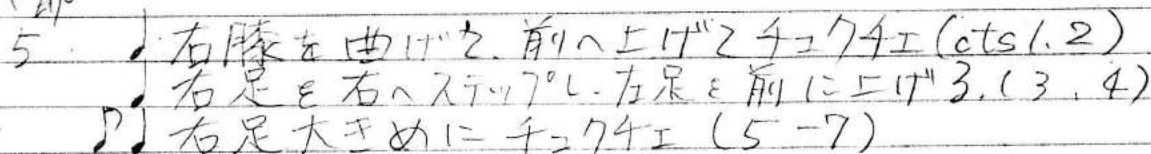 5 ♩ 右膝を曲げて、前へ上げてチュクチェ(cts 1.2)
♩ 右足を右へステップし、左足を前に上げる。(3.4)
♪♩ 右足大きめにチュクチェ(5-7)